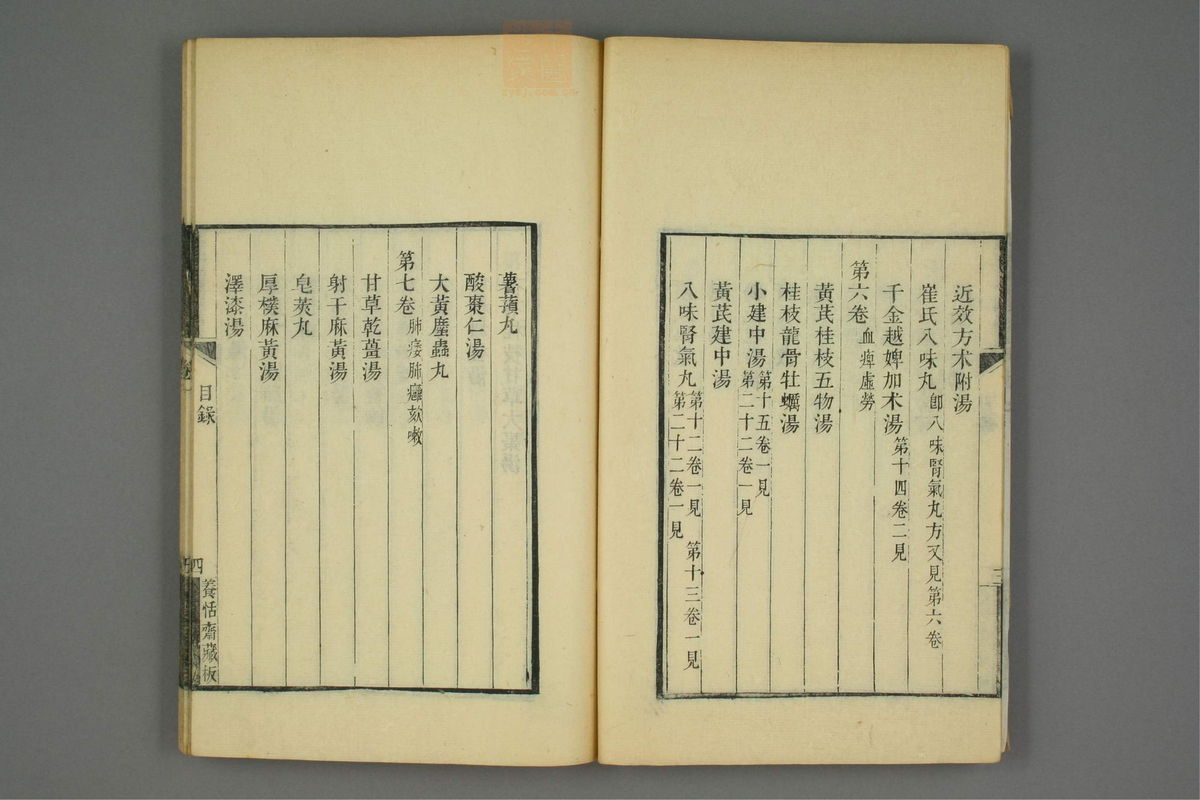 近效方朮附湯
崔氏八味丸卽八味腎氣丸方又見第六卷
千金越婢加朮湯第十四卷二見
第六卷血痺虛勞
黃芪桂枝五物湯
桂枝龍骨牡蠣湯
小建中湯第十五卷一見
第二十二卷一見
黃芪建中湯
八味腎氣丸第十二卷一見 第十三卷一見
第二十二卷一見
三
薯蕷丸
酸棗仁湯
大黃䗪蟲丸
第七卷肺痿肺癰欬嗽
甘草乾薑湯
射干麻黃湯
皂莢丸
厚樸麻黃湯
澤漆湯
目錄
四
養恬齋藏板